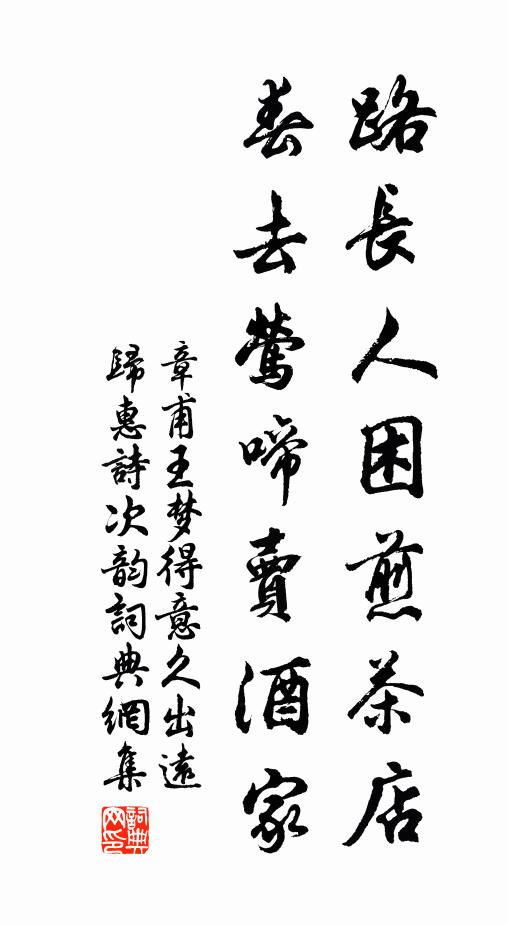 路長人困煎茶店
春去鶯啼賣酒家
章甫王梦得意久出遠
歸惠詩次韵詞典網集
詞典网印